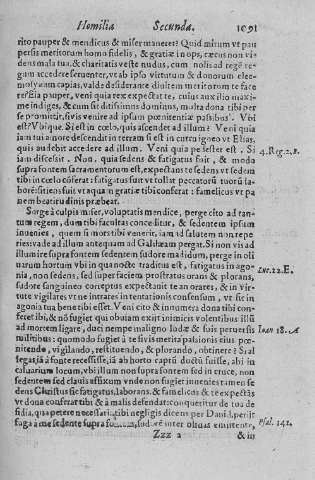 Homilia Secunda. 1091
rito pauper & mendicus & miser maneret? Quid mirum vt pau
persis meritorum homo fidelis, & gratiæ inops, cæcus non vi
dens mala tua, & charitatis veste nudus, cum nolis ad regē re-
gum accedere seruenter, vt ab ipso virtutum & donorum elee-
mosynam capias, valde desiderante diuitem meritorum te face
re? Eia pauper, veni quia rex expectat te, cuius auxilio maxi-
me indiges, & cum sit ditissimus dominus, multa dona tibi per
se promittit, si vis venire ad ipsum pœnitentiæ passibus. Vbi
est? Vbique. Si est in cœlo, quis ascendet ad illum? Veni quia
iam tui amore descendit in terram si est in curru igneo vt Elias,
quis audebit accedere ad illum. Veni quia pedester est. Si
4. Reg. 2. B.
iam discessit. Non, quia sedens & fatigatus fuit, & modo
supra fontem sacramentorum est, expectans te sedens vt sedem
tibi in cœlo conferat: fatigatus fuit vt tollat peccatorū tuorū la-
borē: sitiens fuit vt aquam gratiæ tibi conferat: famelicus vt pa
nem beatitudinis præbeat.
Surge à culpis miser, voluptatis mendice, perge cito ad tan-
tum regem, dum tibi facultas conceditur, & sedentem ipsum
inuenies, quem si mox tibi venerit, iam ad salutem non repe
ries: vade ad illum antequam ad Galilæam pergat. Si non vis ad
illum ire supra fontem sedentem sudore madidum, perge in oli
uarum hortum vbi in qua nocte traditus est, fatigatus in ago-
Luc. 22. E.
nia, non sedens, sed super faciem prostratus orans & plorans,
sudore sanguineo correptus expectauit te an orares, & in vir-
tute vigilares vt ne intrares in tentationis consensum, vt sic in
agonia tua benefici esset. Veni cito & innumera dona tibi con-
feret ibi, & nō fugiet qui obuiam exiit inimicis volentibus illū
ad mortem ligare, duci nempe maligno Iudæ & suis peruersis
Ioan 18. A
militibus: quomodo fugiet à te si vis meritis passionis eius pœ-
nitendo, vigilando, restituendo, & plorando, obtinere? Si al
legat iā à fonte recessisse, iā ab horto captū ductū fuisse, abi in
caluariæ locum, vbi illum non supra fontem sed in cruce, non
sedentem sed clauis affixum vnde non fugiet inuenies tamen se
dens Christus sic fatigatus, laborans, & famelicus & te expectās
vt dona conferat tibi & à malis defendat: conqueritur de tua de
sidia, qua petere necessaria tibi negligis dicens per Dauid, perijt
fuga à me sedente supra fontem, sudore inter oliuas emittente,
Psal. 141.
Zzz 2 & in